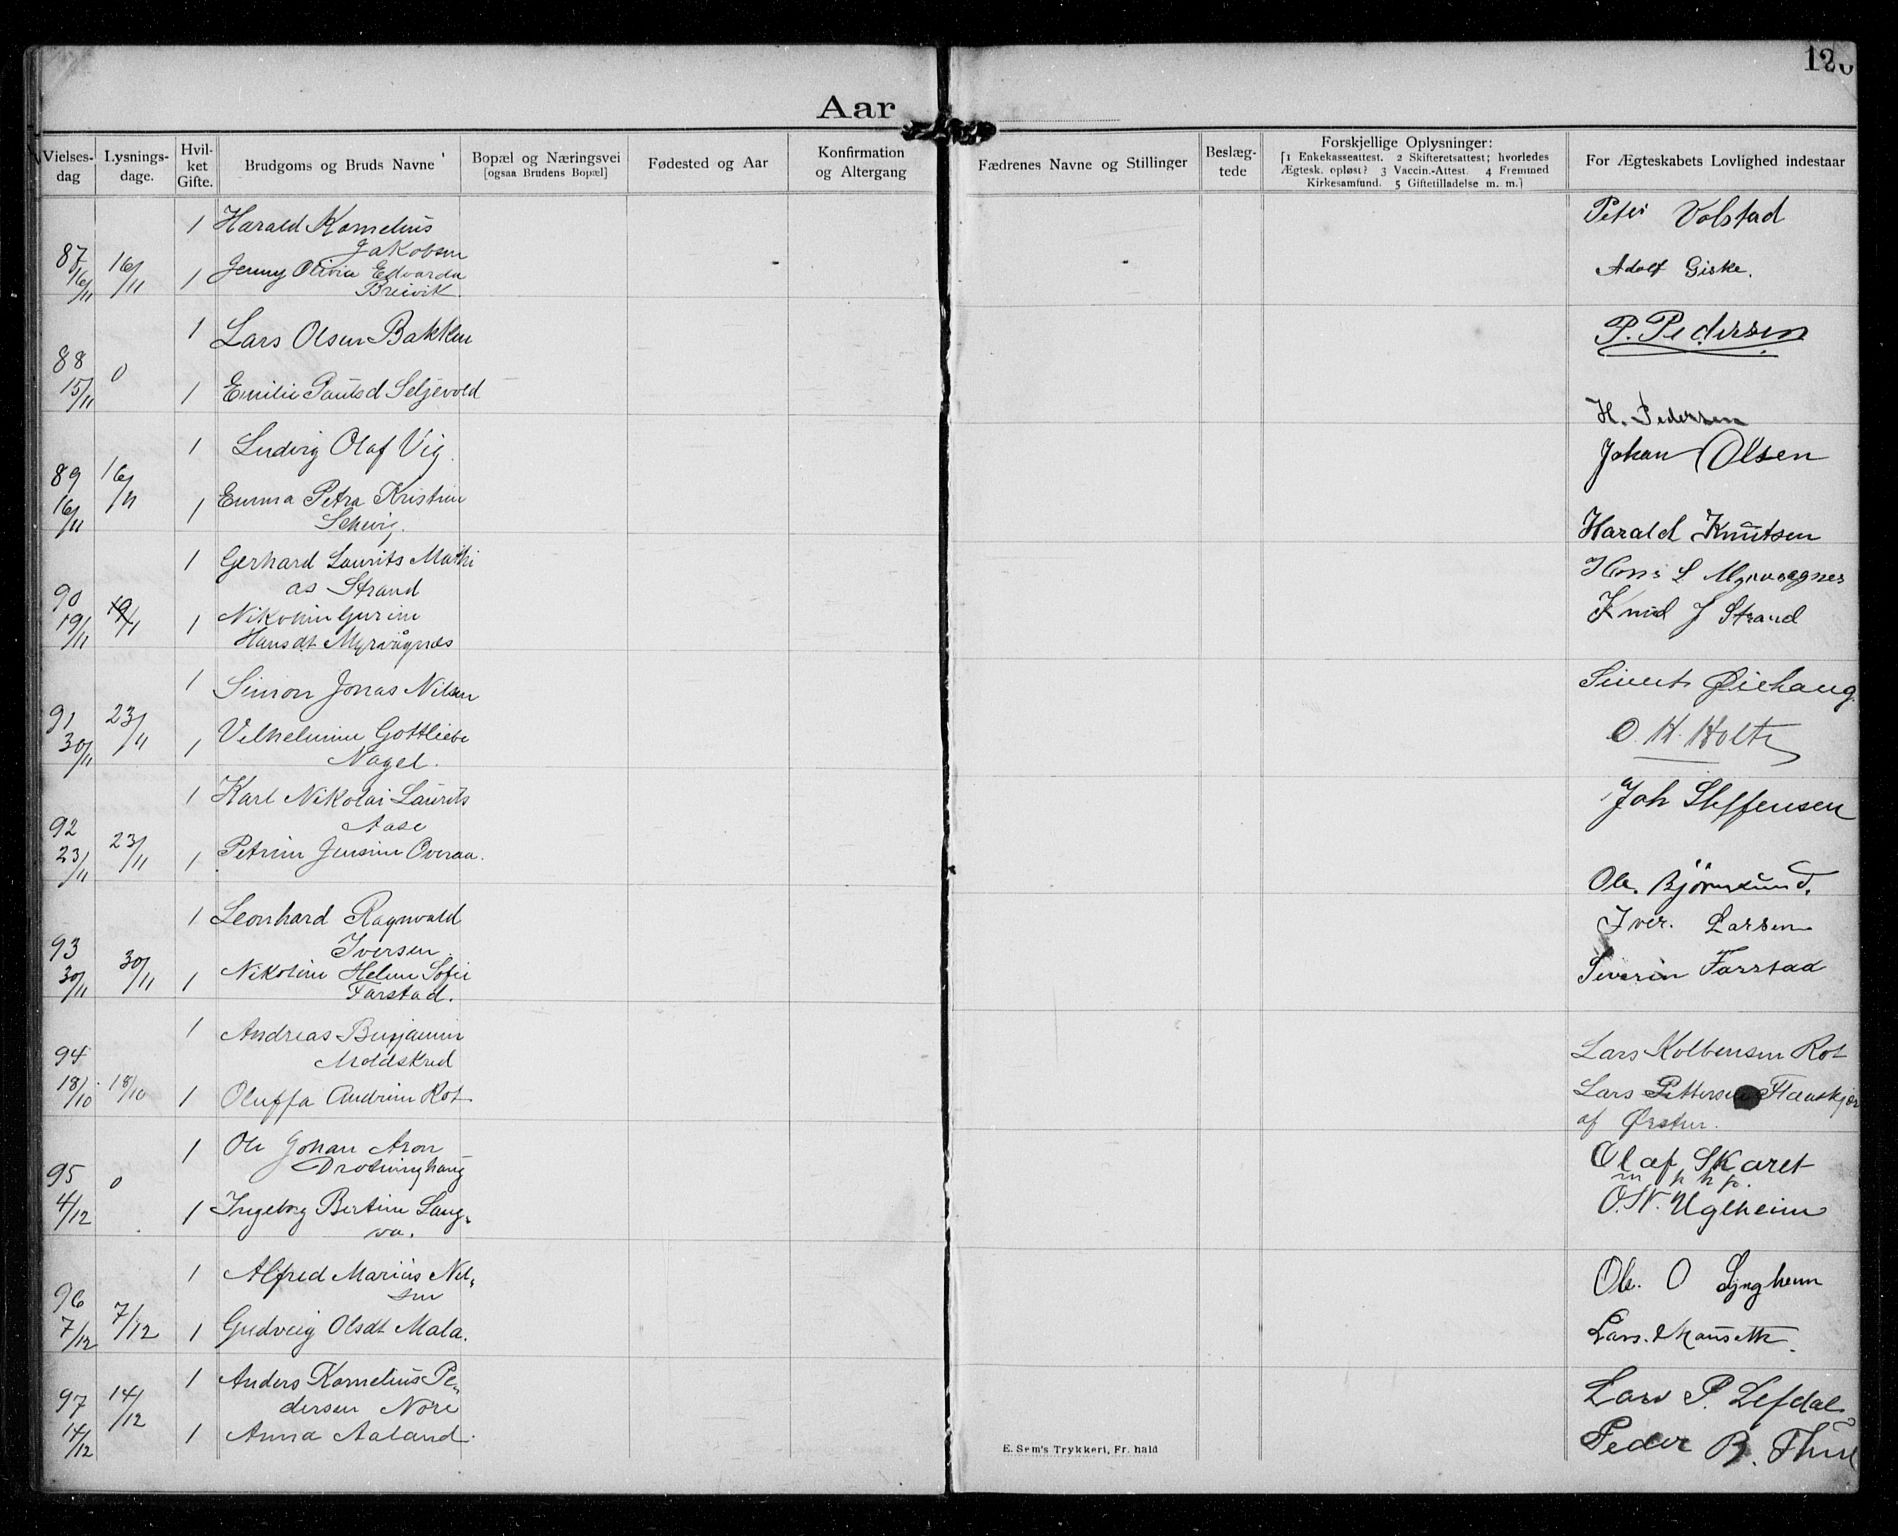 Aar
Vielses-dag
Lysnings-dage.
Hvil-ket Gifte.
Brudgoms og Bruds Navne
Bopæl og Næringsvei
[ogsaa Brudens Bopæl]
Fødested og Aar
Konfirmation
og Altergang
Fædrenes Navne og Stillinger
Beslæg-
tede
Forskjellige Oplysninger:
[1 Enkekasseattest. 2 Skifteretsattest; hvorledes
Ægtesk. opløst? 3 Vaccin.-Attest. 4 Fremmed
Kirkesamfund. 5 Giftetilladelse m. m.]
For Ægteskabets Lovlighed indestaar
1 Harald Kornelius
Jakobsen
87 16/11 16/11
1 Jenny Olivia Edvarda
Breivik.
Peter Volstad
Adolf Giske.
1 Lars Olsen Bakken
88 15/11 0
1 Emilie Seljevold
P. Pedersen
H. Pedersen
1 Ludvig Olaf Vig.
89 16/11 16/11
1 Emma Petra Kristine
Johan Olsen
Harald Knutsen
1 Gerhard Laurits Mathi
as Strand
90 19/11 19/11
1 Nikoline Gurine
Hansdt Myrvågnes
Hans L Myrvaagnes
Knud J Strand
1 Simon Jonas Nilsen
91 30/11 23/11
1 Vilhelmine Gottliebe
Nagel.
Sivert Øiehaug
O. H. Holte
1 Karl Nikolai Laurits
Aase
92 23/11 23/11
1 Petrine Jensine Overaa.
Joh Steffensen
Ole. Bjørnsund.
1 Leonhard Ragnvald
Iversen
93 30/11 30/11
1 Nikoline Helene Sofie
Farstad.
Iver. Larsen
Severin Farstad
1 Andreas Benjamin
Moldskred
94 18/10 18/10
1 Oluffa Andrine Rot
Lars Kolbensen Rot
Lars Pettersen Flauskjær
af Ørsten.
1 Ole Johan Aron
Drotninghaug
95 4/12 0
1 Ingeborg Bertine Lang-
va.
Olaf Skaret
O. N. Uglheim
1 Alfred Marius Nil-
sen
96 7/12 7/12
1 Gudveig Olsdt Mala.
Ole. O Lyngheim
Lars. Mauseth.
1 Anders Kornelius Pe-
dersen Nore
97 14/12 14/12
1 Anna Aaland.
Lars P. Lefdal
Peder B. Thue
E. Sem's Trykkeri, Fr. hald